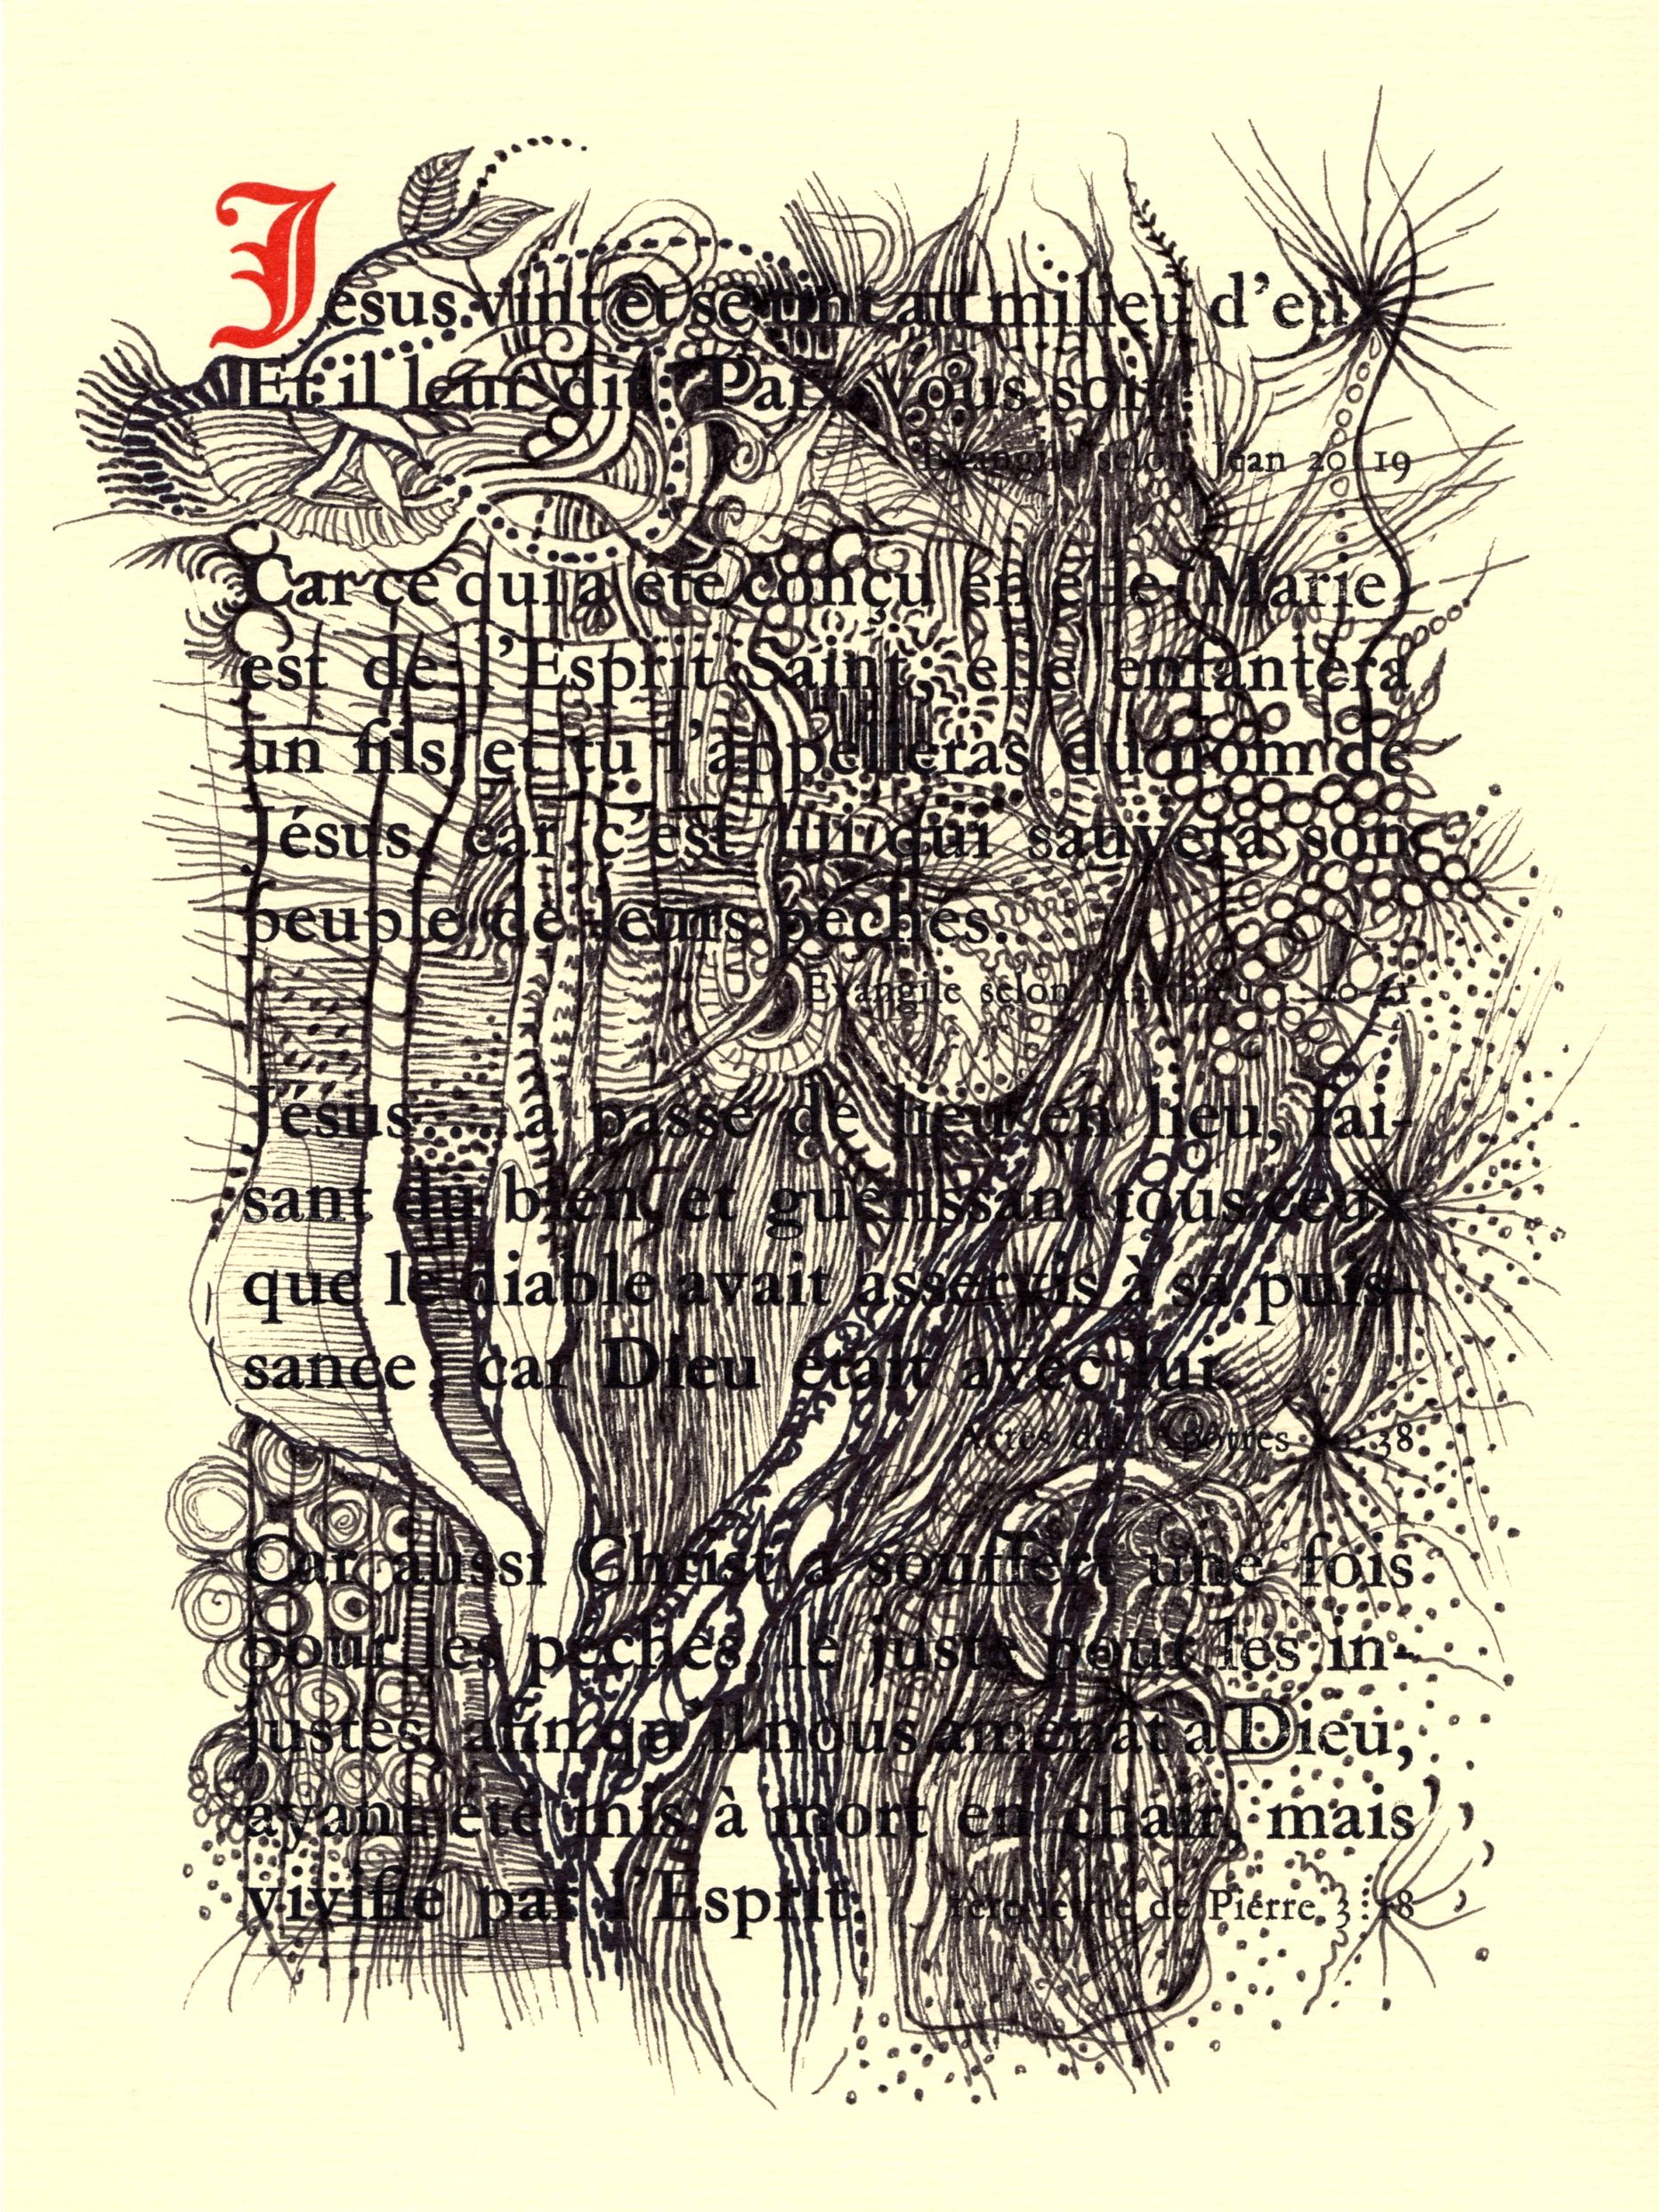 Jésus vint et se tint au milieu d'eux
Et il leur dit : Paix à vous soit
Evangile selon Jean 20 19
Car ce qui a été conçu en elle (Marie)
est de l'Esprit Saint, elle enfantera
un fils, et tu l'appelleras du nom de
Jésus, car c'est lui qui sauvera son
peuple de leurs péchés.
Evangile selon Matthieu 20 21
Jésus . . . a passé de lieu en lieu, fai-
sant du bien, et guérissant tous ceux
que le diable avait asservis à sa puis-
sance ; car Dieu était avec lui.
Actes des Apôtres 38
Car aussi Christ a souffert une fois
pour les péchés, le juste pour les in-
justes, afin qu'il nous amenât à Dieu,
ayant été mis à mort en chair, mais
vivifié par l'Esprit.
1ère lettre de Pierre 3 : 18